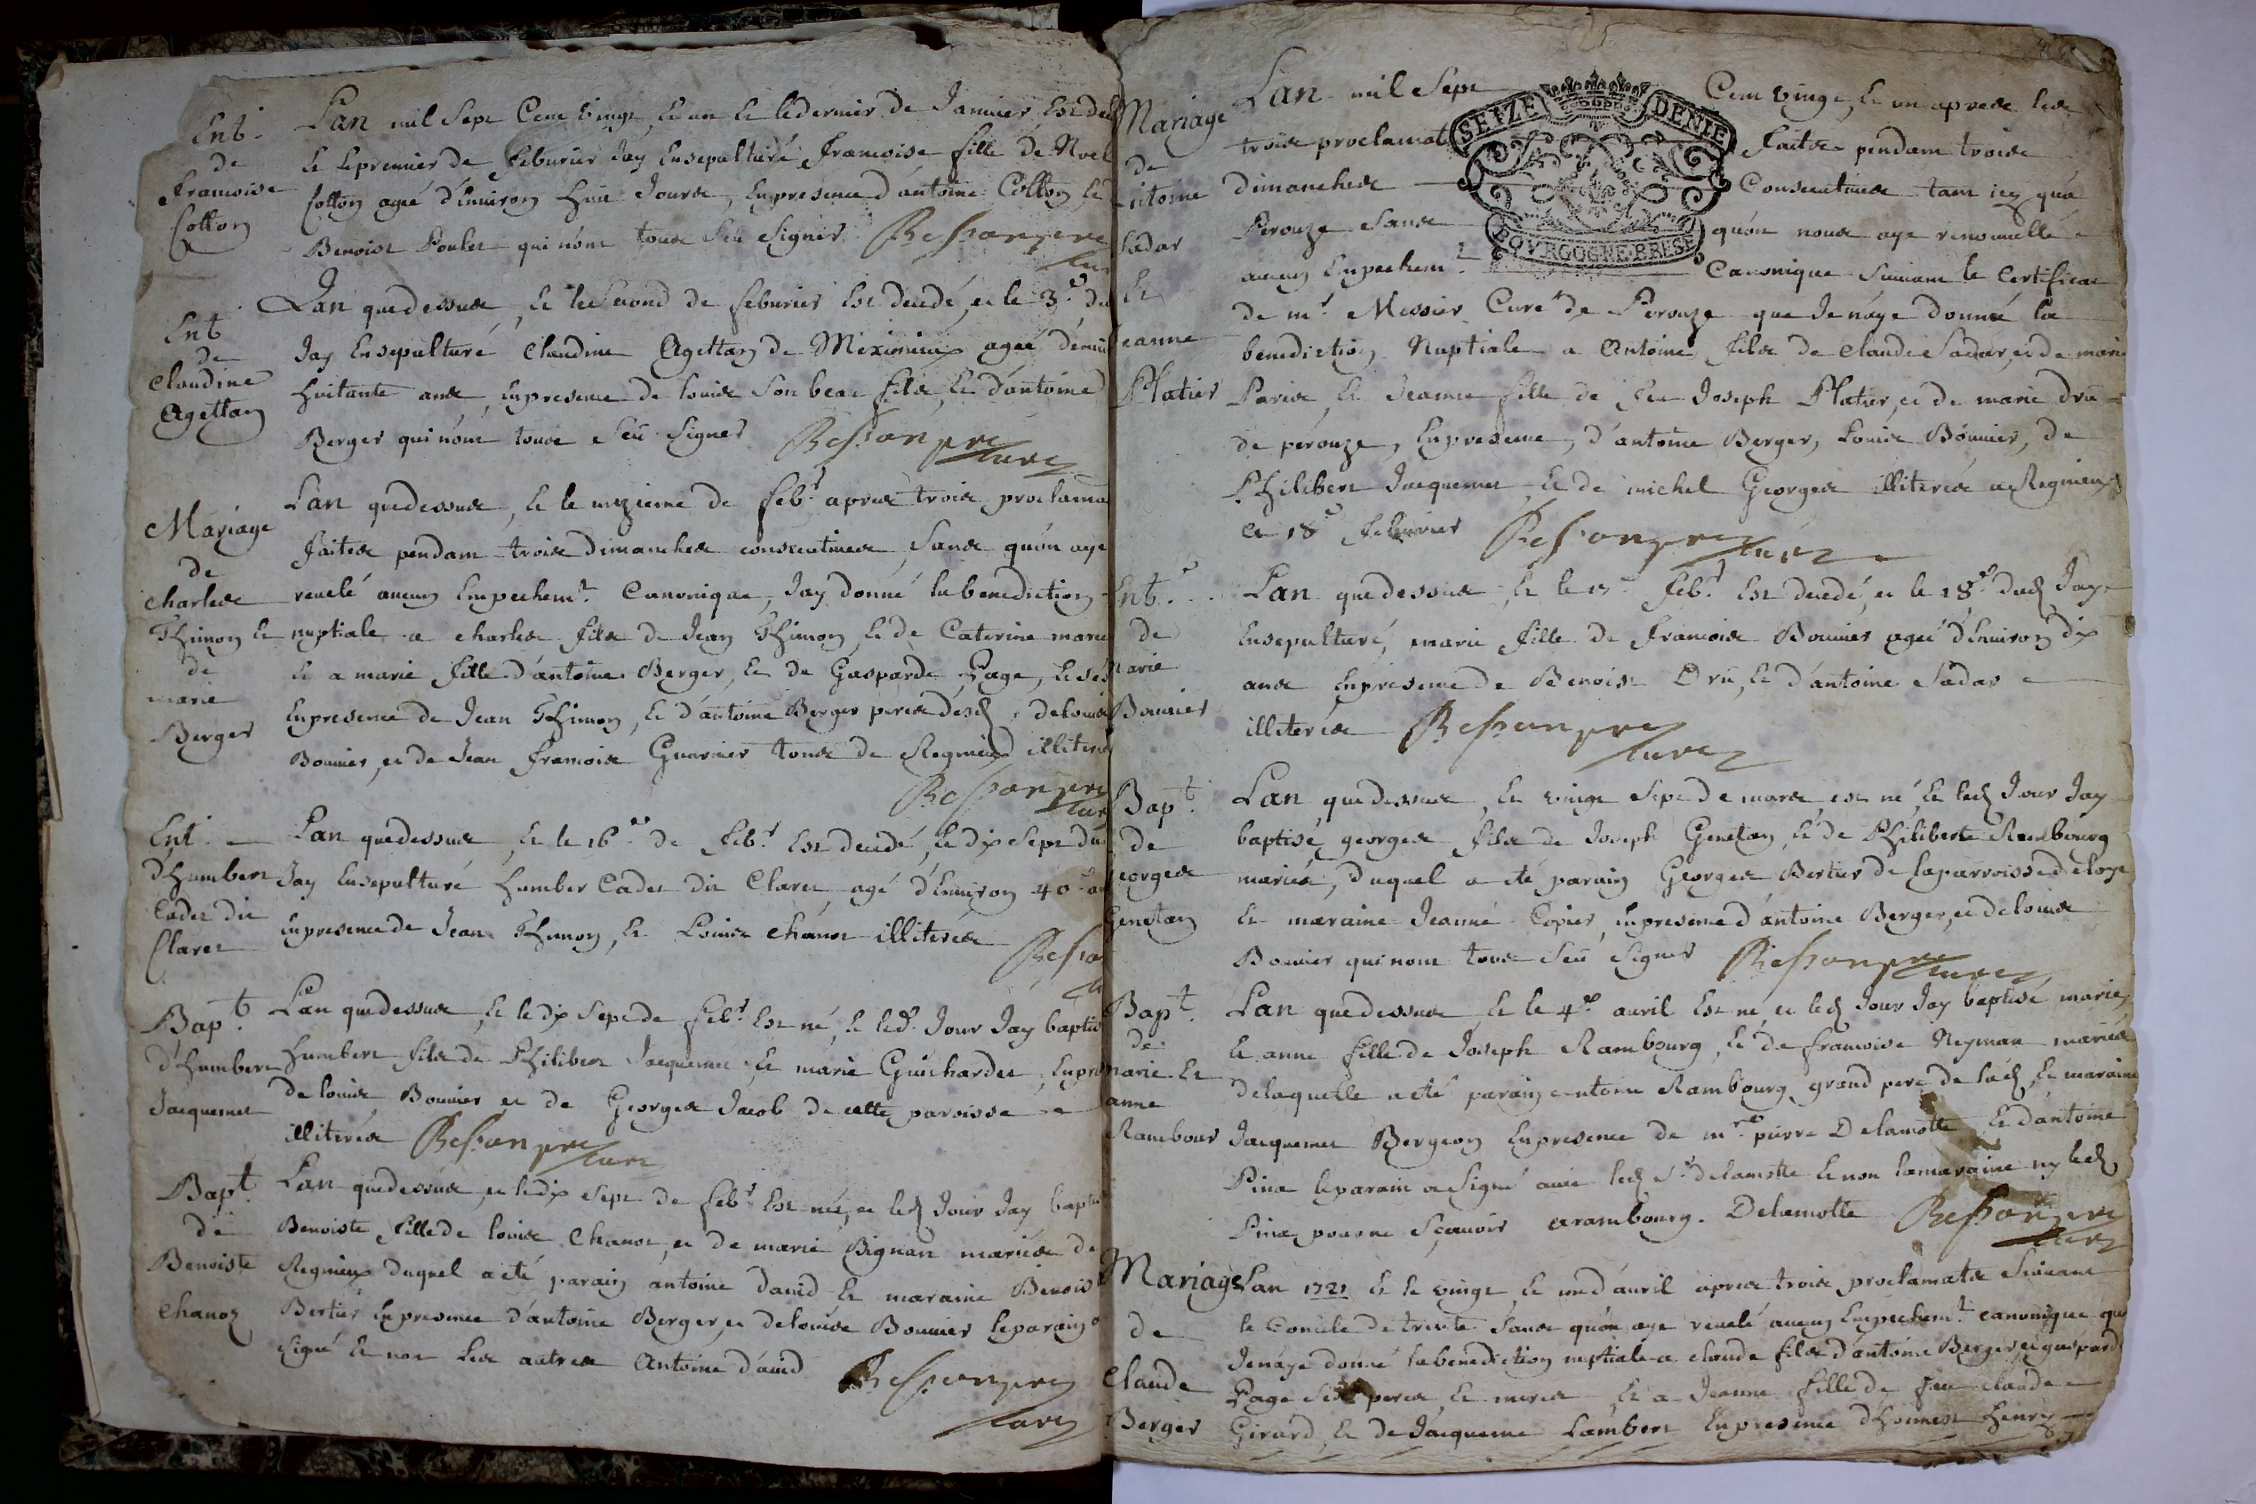 Ent.
de
francoise
Cotton
Lan mil Sept Cent vingt, et un et le dernier de Janvier Est
et le premier de feburier Jay Ensepulturé francoise fille de Noel
Cotton agée d'environ huit Jours, En présence d'antoine Cotton, et
Benoist Poulet qui n'ont tous Seu Signer Besson pre
Ent
de
Claudine
Agettan
Lan que dessus, et le second de feburier Est decedé, et le 3e. du
Jay Ensepulturé Claudine Agettan de Meximieux agée d'envi
huitante ans, En presence de louis Son beau fils, et d'antoine
Berger qui n'ont tous Seu Signer Besson pre
Curé
Mariage
de
charles
Thimon et
de
marie
Berger
Lan que dessus, et le onzieme de feb.r apres trois proclama
faites pendant trois Dimanches consecutives, Sans qu'on aye
revelé aucun Empechem.t Canonique, Jay donné la benediction
nuptiale a charles fils de Jean Thimon, et de Caterine
et a marie fille d'antoine Berger, et de Gasparde Page,
En presence de Jean Thimon, et d'antoine Berger peres desd. de louis
Bonnier, et de Jean francois Guarnier tous de Regnieu illiteré
Besson pre
Ent.
d'humbert
Cadet dit
Claret
Lan que dessus, et le 16e. de feb.r Est decedé, le dix Sept du
Jay Ensepulturé humber Cadet dit Claret, agé d'Environ 40 an
En presence de Jean Thimon, et Louis chanot illiterés
Bapt.
d'humbert
Jacquemet
Lan que dessus, et le dix Sept de feb.r Est né, et led. Jour Jay baptis
humbert fils de Philibert Jacquemet, et marie Guichardet, En pre
de louis Bonnier et de Georges Jacob de cette paroisse
illiterés Besson pre
Curé
Bapt.
de
Benoiste
chanoz
Lan que dessus, et le dix Sept de feb.r Est née, et led. Jour Jay baptis
Benoiste fille de louis Chanot, et de marie Bignan mariés de
Regnieux duquel a eté parain antoine david et maraine Benoist
Bertier En presence d'antoine Berger, et de louis Bonnier le parain
Signé et non les autres Antoine d'avid Besson pre
Curé
Mariage
de
Sadar
Et
Jeanne
Platier
Lan mil Sept Cent vingt, et un apres les
trois proclamat faites pendant trois
dimanches Consecutives tant icy qu'a
Perouze Sans qu'on nous aye renouvellé
aucun Empechem.t Canonique Suivant le Certificat
SEIZE DENIE
BOVRGOGNE·BRESE
de m.r Messier Curé de Perouze que Je n'aye donné la
benediction Nuptiale a Antoine fils de Claude Sadar, et de marie
Paris, et Jeanne fille de feu Joseph Platier, et de marie dru
de pérouze, En presence, d'antoine Berger, Louis Bonnier, de
Philibert Jacquemet et de michel Georges illiterés a Regnieux
Ce 18e feburier Besson pre
Curé
Ent.
de
Marie
Bonnier
Lan que dessus, et le feb.r Est decedé, et le 18e. dud. Jay
Ensepulturé, marie fille de francois Bonnier agée d'Environ dix
ans En presence de Benoist Dru, et d'antoine Sadar
illiterés Besson pre
Curé
Bapt.
de
georges
Genetan
Lan que dessus, et vingt Sept de mars est né, et led. Jour Jay
baptisé georges fils de Joseph Genetan, et de Philiberte Rambourg
mariés, duquel a eté parain Georges Bertier de la parroisse de loye
et maraine Jeanne Copier, En presence d'antoine Berger, et de louis
Bonnier qui n'ont tous Seu Signer Besson pre
Curé
Bapt.
de
marie Et
anne
Rambour
Lan que dessus, et le 4e. avril Est né, et led. Jour Jay baptisé marie,
et anne fille de Joseph Rambourg, et de francoise Neyman mariés
de laquelle a eté parain antoine Rambourg grand pere de lad. et maraine
Jacquemet Bergeon En presence de m.re pierre Delamotte et d'antoine
Pina le parain a Signé avec led. S.r delamotte et non la maraine ny led.
Pina pour ne Scavoir arambourg. Delamotte Besson pre
Curé
Mariage
de
Claude
Berger
Lan 1721 et le vingt, et un d'avril apres trois proclamats Suivant
le Concile de trente Sans qu'on aye revelé aucun Empechem.t canonique que
Je n'aye donné la benediction nuptiale a claude fils d'antoine Berger, et gaspard
Page Ses peres, et meres, et a Jeanne fille de feu claude
Girard, et de Jacqueme Lambert En presence d'honnest henry